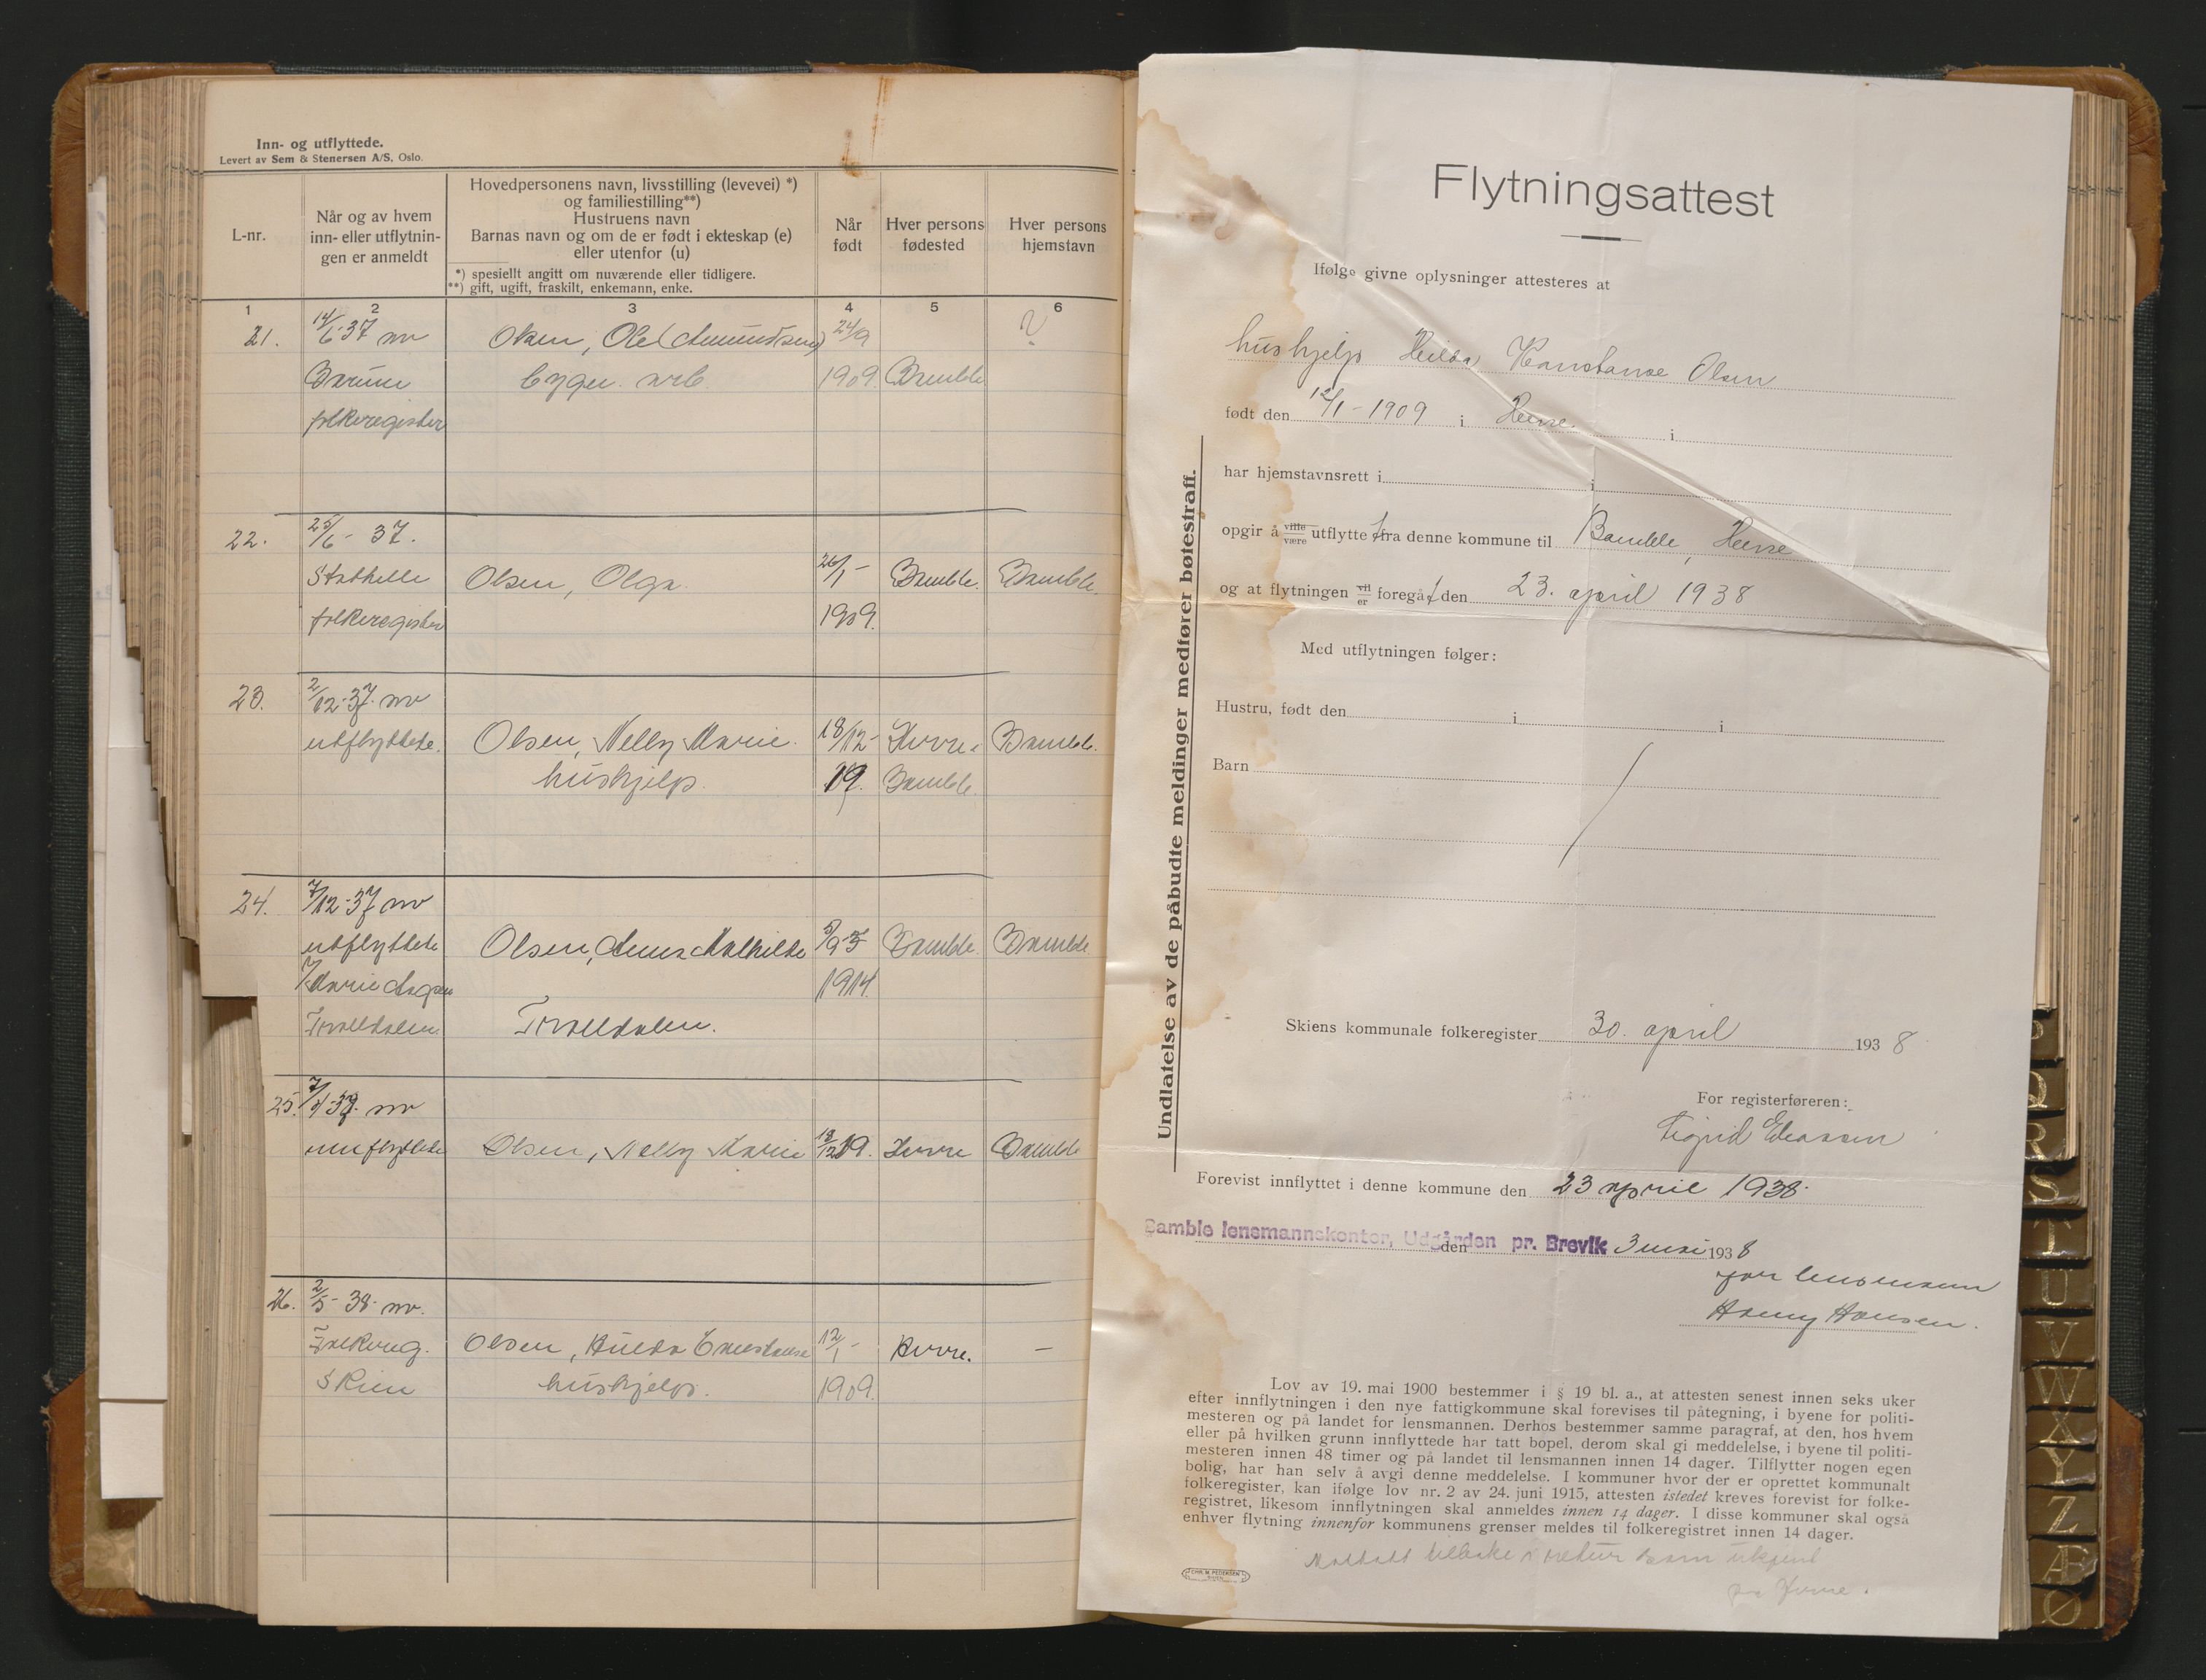 Inn- og utflyttede.
Levert av Sem & Stenersen A/S, Oslo.
L-nr.
Når og av hvem
inn- eller utflytnin-
gen er anmeldt
Hovedpersonens navn, livsstilling (levevei) *)
og familiestilling**)
Hustruens navn
Barnas navn og om de er født i ekteskap (e)
eller utenfor (u)
*) spesiellt angitt om nuværende eller tidligere.
**) gift, ugift, fraskilt, enkemann, enke.
Når
født
Hver persons
fødested
Hver persons
hjemstavn
1 2 3 4 5 6
21. 14/6-37 av Olsen, Ole (Amundsen) 24/9 ?
Bærum bygn. arb. 1909. Bamble
folkeregister
22. 25/6- 37.
Stathelle Olsen, Olga 26/1- Bamble. Bamble.
folkeregister 1909.
23. 2/12-37. av
utflyttede. Olsen, Nelly Marie. 18/12- Herre. Bamble.
hushjelp. 19. Bamble.
24. 7/12-37 av
utflyttede Olsen, Anna Mathilde 5/9- Bamble. Bamble.
1914.
Trolldalen. Trolldalen.
25. av
innflyttede Olsen, Nelly Marie 18/12 19. Herre Bamble
26. 2/5-38. av.
Folkereg. Olsen, Hilda Constanse 12/1- Herre. —
Skien hushjelp. 1909.
Flytningsattest
Ifølge givne oplysninger attesteres at
hushjelp Hilda Konstanse Olsen
født den 12/1-1909 i Herre i
har hjemstavnsrett i i
opgir å ville/være utflytte fra denne kommune til Bamble, Herre
og at flytningen vil/er foregåt den 23. april 1938
Med utflytningen følger:
Hustru, født den i i
Barn
Skiens kommunale folkeregister 30. april 1938
For registerføreren:
Sigrid Eliassen
Forevist innflyttet i denne kommune den 23 april 1938.
Bamble lensmannskontor, Udgården pr. Brevik den 3 mai 1938
for lensmann
Hansen.
Undlatelse av de påbudte meldinger medfører bøtestraff.
Lov av 19. mai 1900 bestemmer i § 19 bl. a., at attesten senest innen seks uker
efter innflytningen i den nye fattigkommune skal forevises til påtegning, i byene for politi-
mesteren og på landet for lensmannen. Derhos bestemmer samme paragraf, at den, hos hvem
eller på hvilken grunn innflyttede har tatt bopel, derom skal gi meddelelse, i byene til politi-
mesteren innen 48 timer og på landet til lensmannen innen 14 dager. Tilflytter nogen egen
bolig, har han selv å avgi denne meddelelse. I kommuner hvor der er oprettet kommunalt
folkeregister, kan ifølge lov nr. 2 av 24. juni 1915, attesten istedet kreves forevist for folke-
registret, likesom innflytningen skal anmeldes innen 14 dager. I disse kommuner skal også
enhver flytning innenfor kommunens grenser meldes til folkeregistret innen 14 dager.
tilbake i retur som ukjent
på Herre.
CHR. M. PEDERSEN
P
Q
R
S
T
U
V
W
X
Y
Z
Æ
Ø